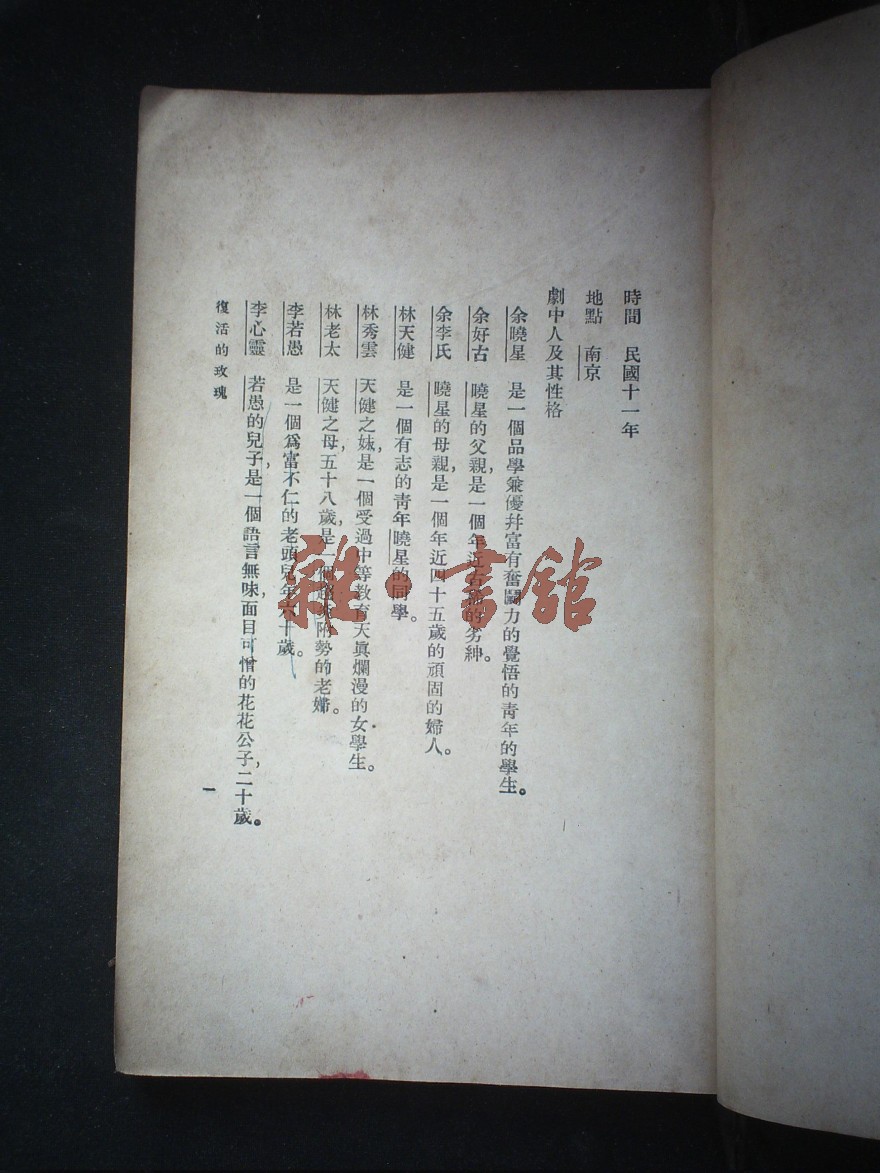 時間　民國十一年
地點　南京
劇中人及其性格
余曉星　是一個品學兼優幷富有奮鬭力的覺悟的靑年的學生。
余好古　曉星的父親，是一個年近的劣紳。
余李氏　曉星的母親，是一個年近四十五歲的頑固的婦人。
林天健　是一個有志的靑年曉星的同學。
林秀雲　天健之妹，是一個受過中等教育天眞爛漫的女學生。
林老太　天健之母，五十八歲，是一個附勢的老婦。
李若愚　是一個爲富不仁的老頭兒年六十歲。
李心靈　若愚的兒子，是一個語言無味，面目可憎的花花公子，二十歲。
復活的玫瑰
一
雜·書館